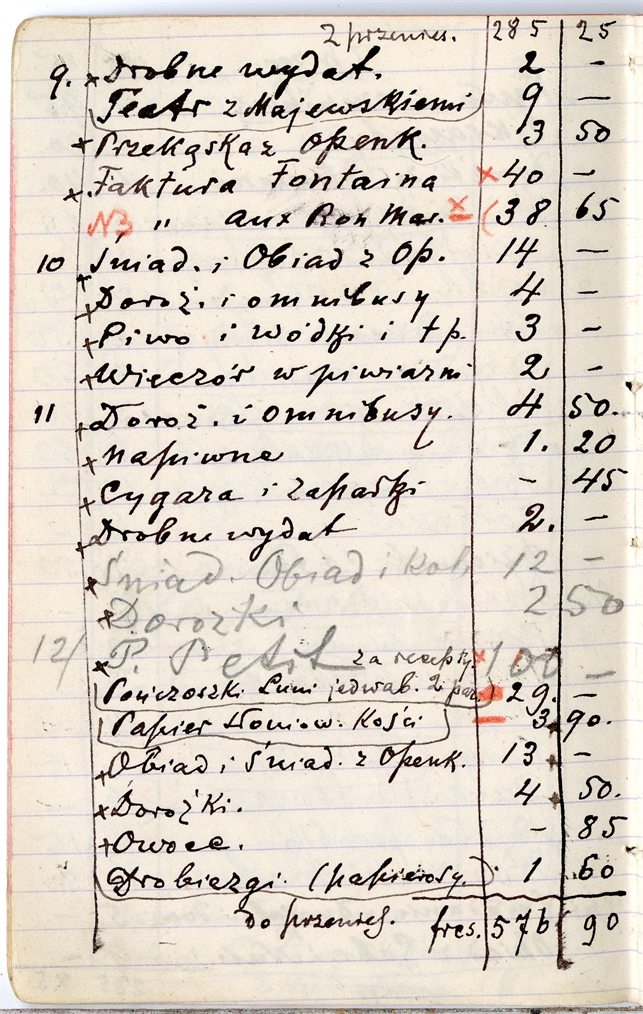 Z przenies. 285 25
9. × Drobne wydat. 2 —
Teatr z Majewskiemi 9 —
+ Przekąska z Openk. 3 50
× Faktura Fontaina × 40 —
N3 " aux Ron Mar. × ( 38 65
10 Śniad. i Obiad z Op. 14 —
+ Doroż. i omnibusy 4 —
+ Piwo i wódki i tp. 3 —
+ Wieczór w piwiarni 2 —
11 + Doroż. i omnibusy. 4 50.
+ Napiwne 1. 20
+ Cygara i zapałki - 45
+ Drobne wydat 2. —
× Śniad. Obiad i Kol. 12 —
× Dorożki 2 50
12/ × P. Petit za recepty × 100 —
Pończoszki Luni jedwab. 2 par. 29. —
Papier słoniow. Kości 3. 90.
+ Obiad i Śniad. z Openk. 13 —
× Dorożki. 4 50.
+ Owoce. - 85
Drobiezgi. (papierosy.) 1 60
Do przenies. frcs. 576 90